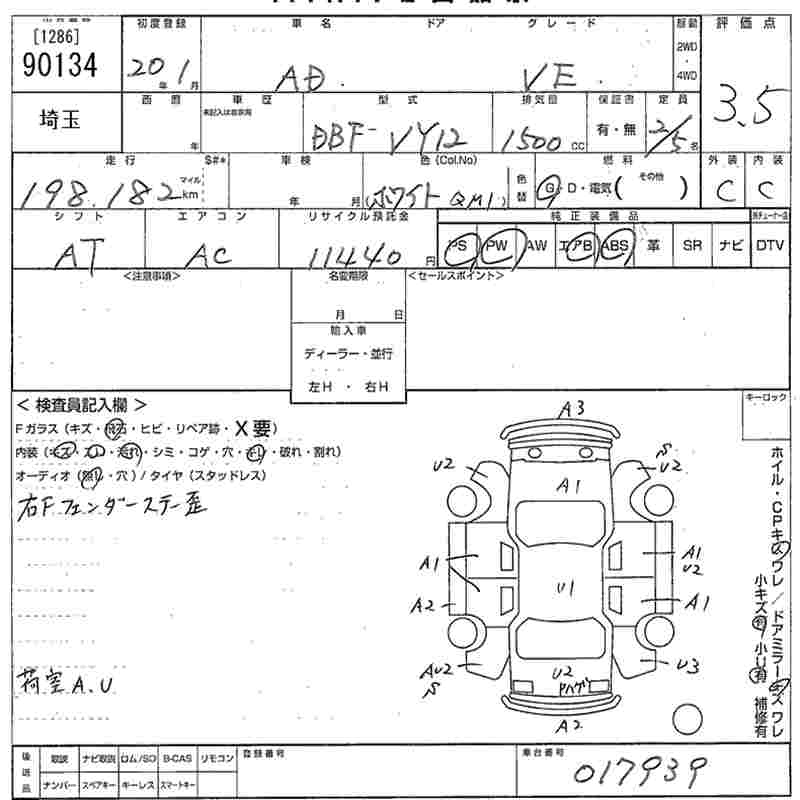 [1286]
90134
初度登録 車名 ドア グレード 駆動 評価点
20年 1月 AD VE 2WD・4WD 3.5
埼玉
西暦 車歴 型式 排気量 保証書 定員
年 未記入は自家用 DBF-VY12 1500CC 有・無 2/5名
走行 S#* 車検 色(Col.No) 燃料 外装 内装
198.182 マイル km 年 月 ホワイト QM1 色替 G・D・電気( その他 ) C C
シフト エアコン リサイクル預託金 純正装備品
AT AC 11440円 PS PW AW エアB ABS 革 SR ナビ DTV
<注意事項> 名変期限 <セールスポイント>
月 日
輸入車
ディーラー・並行
左H ・ 右H
<検査員記入欄> キーロック
Fガラス(キズ・飛石・ヒビ・リペア跡・X要)
内装(キズ・スレ・汚れ・シミ・コゲ・穴・ネレ・破れ・割れ)
オーディオ(無し・穴)/タイヤ(スタッドレス)
右Fフェンダーステー歪
荷室A.U
A3
U2 A1 S U2
A1 A1 U2
U1
A2 A1
AU2 S U2 ハゲ U3
A2
ホイル・CPキズワレ/ドアミラーキズワレ
小キズ有 小U有 補修有
後送品 取説 ナビ取説 ロム/SD B-CAS リモコン 登録番号 車台番号
ナンバー スペアキー キーレス スマートキー 017939